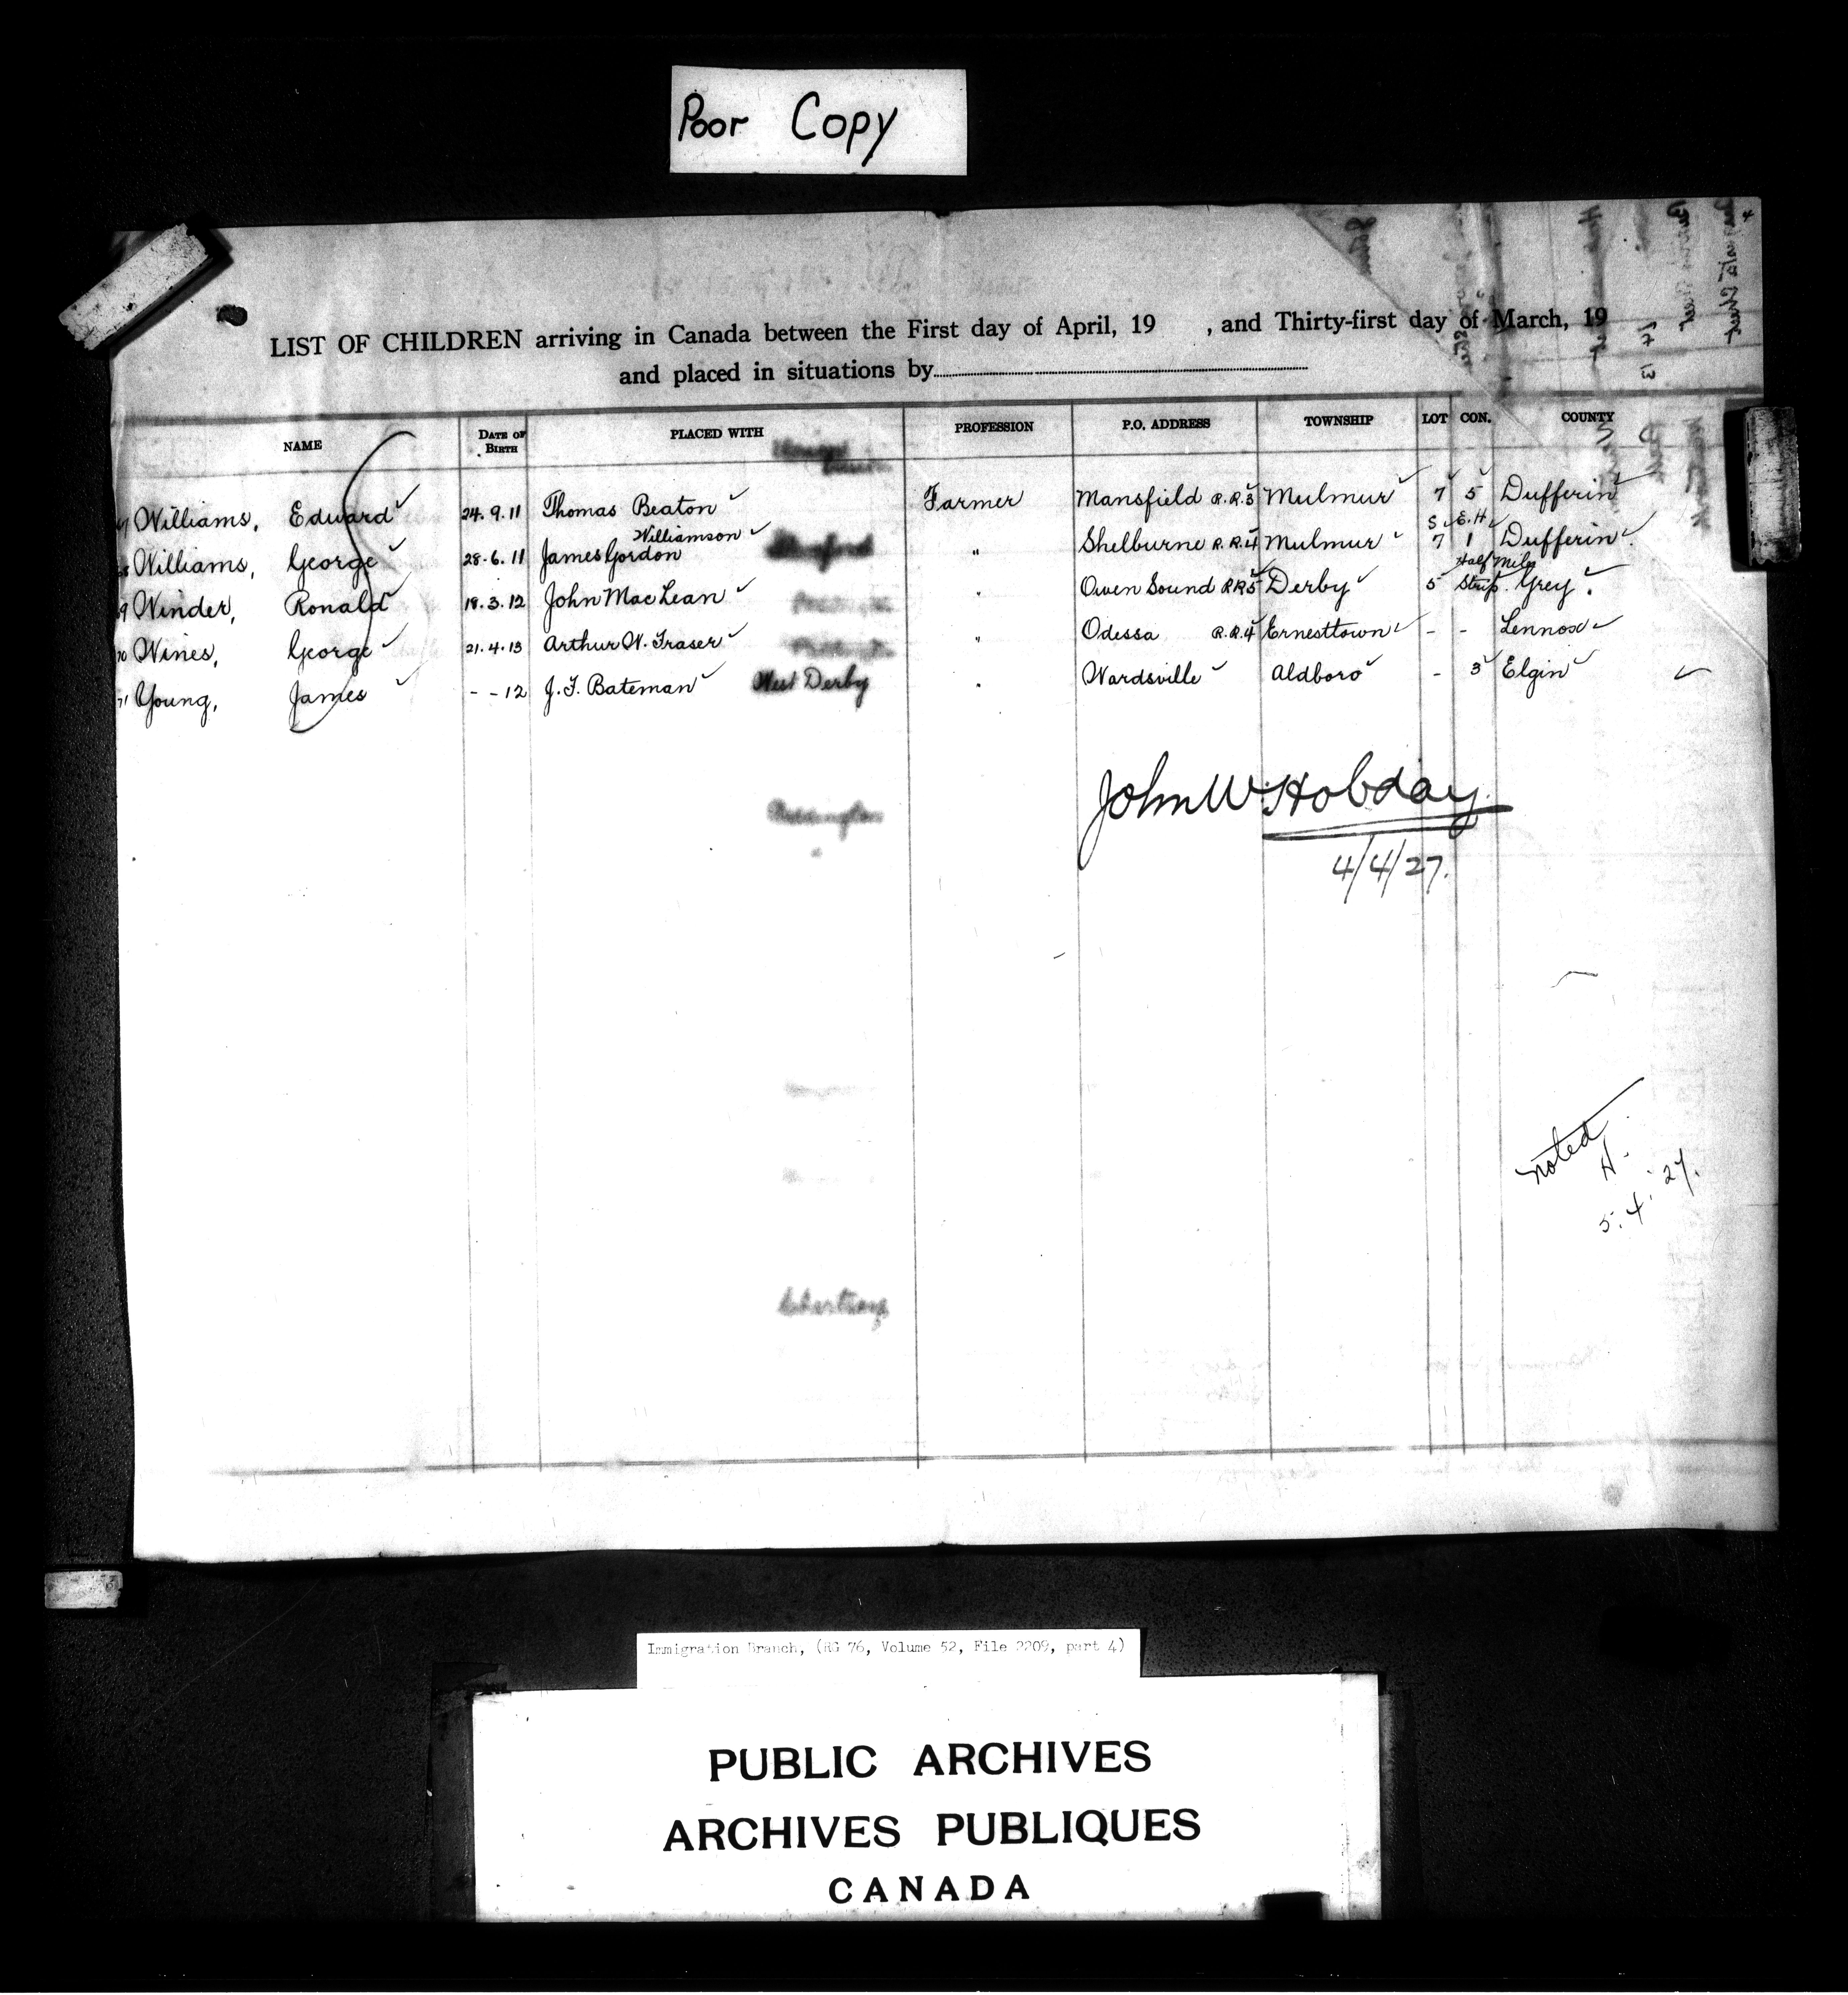 Poor Copy
LIST OF CHILDREN arriving in Canada between the First day of April, 19 , and Thirty-first day of March, 19
and placed in situations by
NAME DATE OF BIRTH PLACED WITH PROFESSION P.O. ADDRESS TOWNSHIP LOT CON. COUNTY
Williams, Edward ✓ 24.9.11 Thomas Beaton ✓ Farmer Mansfield R.R.3 ✓ Mulmur ✓ 7 ✓ 5 ✓ Dufferin ✓
Williamson ✓ S ✓ E.H ✓
Williams, George ✓ 28.6.11 James Gordon " Shelburne R.R.4 ✓ Mulmur ✓ 7 1 Dufferin ✓
Half Mile
9 Winder, Ronald ✓ 18.3.12 John MacLean ✓ " Owen Sound R.R.5 ✓ Derby ✓ 5 Strip. Grey ✓
70 Wines, George ✓ 21.4.13 Arthur W. Fraser ✓ " Odessa R.R.4 ✓ Ernesttown ✓ - - Lennox ✓
71 Young, James ✓ - - 12 J. F. Bateman ✓ West Derby " Wardsville ✓ Aldboro ✓ - 3 ✓ Elgin ✓ ✓
John W Hobday
4/4/27.
noted
H.
5.4.27.
Immigration Branch, (RG 76, Volume 52, File 2209, part 4)
PUBLIC ARCHIVES
ARCHIVES PUBLIQUES
CANADA